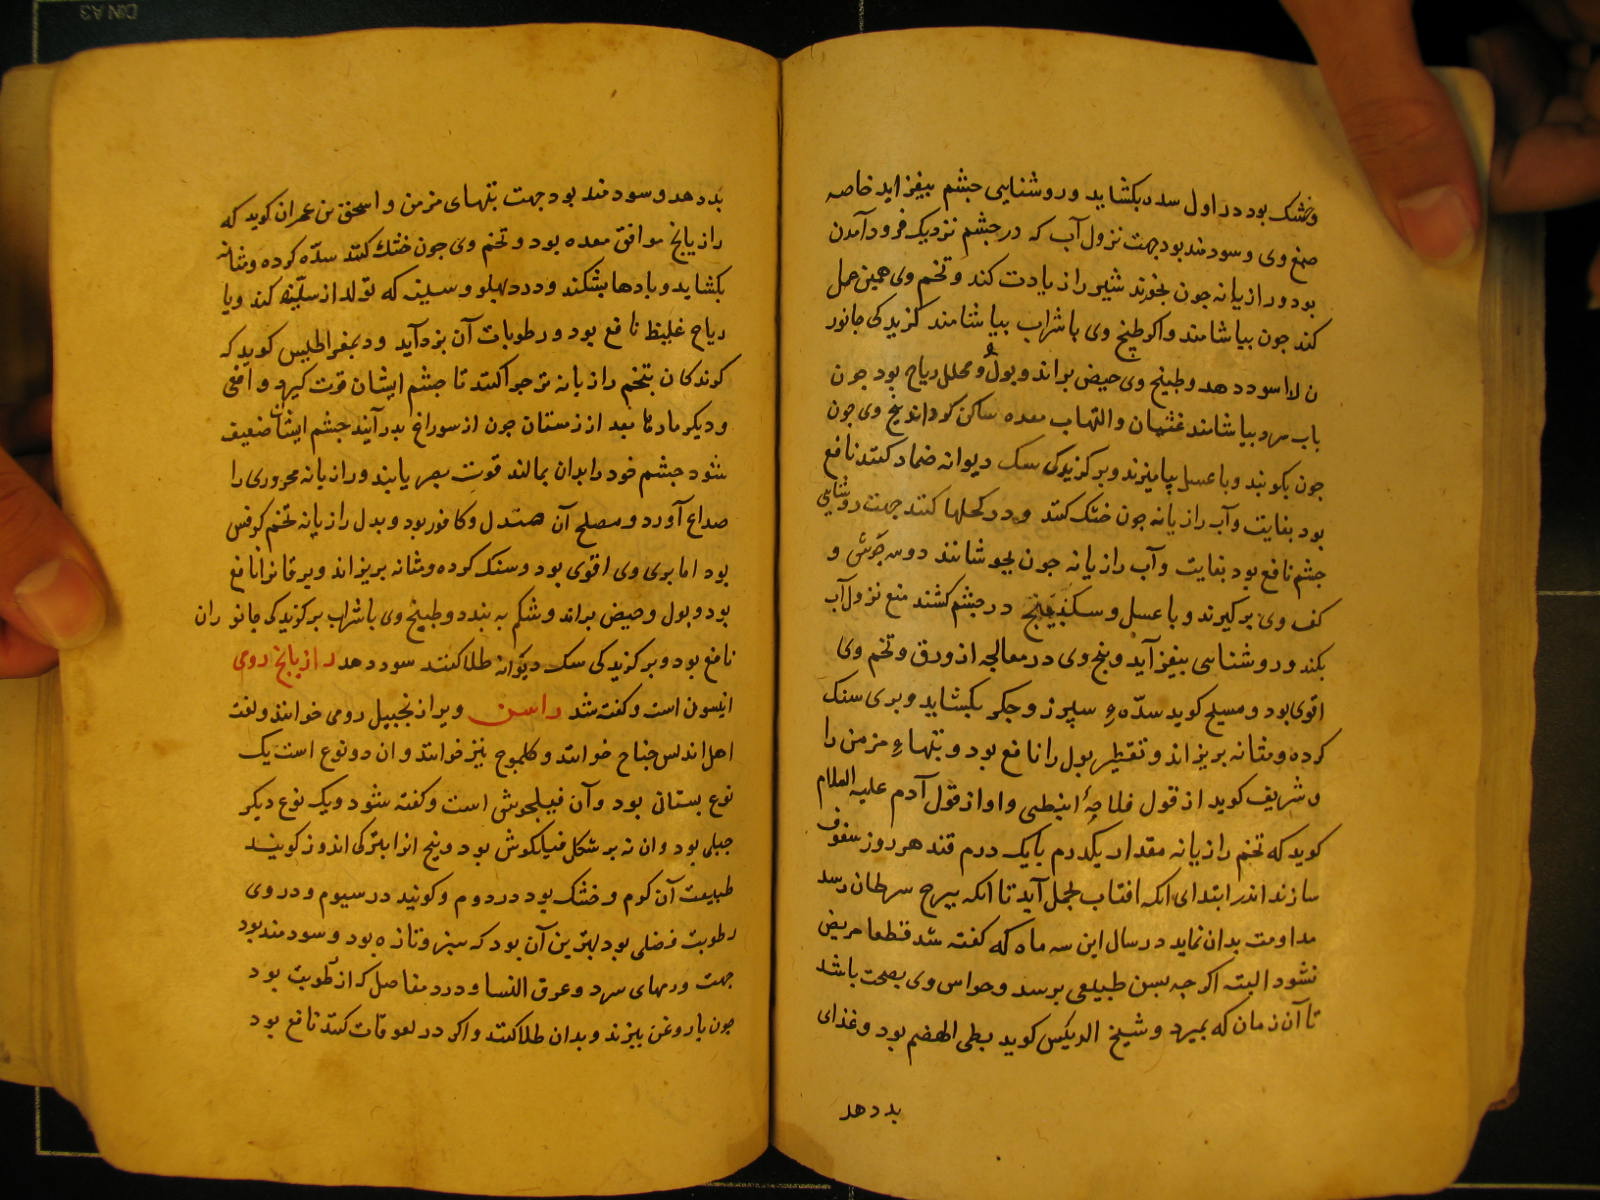 وخشک بود در اول سده بکشاید و روشنایی جشم بیفزاید خاصه
صمغ وی و سودمند بود جهت نزول آب که در جشم نزدیک فرود آمدن
بود و رازیانه جون بخورند شیر را زیادت کند و تخم وی همین عمل
کند جون بیاشامند واکر طبیخ وی با شراب بیاشامند کزیدکی جانور
ن لا سود دهد و طبیخ وی حیض براند و بول و محلل ریاح بود جون
باب سرد بیاشامند غثیان و التهاب معده ساکن کرداند بیخ وی جون
جون بکوبند و با عسل بیامیزند و بر کزیدکی سک دیوانه ضماد کنند نافع
بود بغایت و آب رازیانه جون خشک کنند و در کحلها کنند جهت روشنایی
جشم نافع بود بغایت و آب رازیانه جون بجوشانند دوسه جوشی و
کف وی برکیرند و با عسل و سکنجبین در جشم کشند منع نزول آب
بکند و روشنایی بیفزاید و بیخ وی در معالجه از ورق و تخم وی
اقوی بود و مسیح کوید سدّه سپرز و جکر بکشاید و بری سنک
کرده و مثانه بریزاند و تقطیر بول را نافع بود و تبهاء مزمن را
و شریف کوید از قول فلاحهٔ انبطی و او از قول آدم علیه السلام
کوید که تخم رازیانه مقدار یکدرم با یک درم قند هر روز سفوف
سازند اندر ابتدای انکه افتاب بحمل آید تا انکه ببرج سرطان رسد
مداومت بدان نماید در سال این سه ماه که کفته شد قطعا مریض
نشود البته اکر جه بسن طبیعی برسد و حواس وی بصحت باشد
تا آن زمان که بمیرد و شیخ الریٔس کوید بطی الهضم بود و غذای
بد دهد
بد دهد و سودمند بود جهت تبهای مزمن و اسحق بن عمران کوید که
رازیانج موافق معده بود و تخم وی جون خشک کنند سدّه کرده و مثانه
بکشاید و بادها بشکند و درد پهلو و سینه که تولد از سدّه کند ویا
ریاح غلیظ نافع بود و رطوبات آن بزداید و دیمقراطیس کوید که
کوندکان بتخم رازیانه تر جرا کنند تا جشم ایشان قوت کیرد و افعی
و دیکر مارها بعد از زمستان جون از سوراخ بدر آیند جشم ایشان ضعیف
شود جشم خود را بدان بمالند قوت بصر یابند و رازیانه محروری را
صداع آورد و مصلح آن صندل و کافور بود و بدل رازیانه تخم کرفس
بود اما بری وی اقوی بود و سنک کرده و مثانه بریزاند و یرقانرا نافع
بود و بول و حیض براند و شکم به بندد و طبیخ وی با شراب بر کزیدکی جانوران
نافع بود و بر کزیدکی سک دیوانه طلا کنند سود دهد رازیانج رومی
انیسون است و کفته شد راسن ویرا زنجبیل رومی خوانند و لغت
اهل اندلس جناح خوانند و کلموج نیز خوانند و ان دو نوع است یک
نوع بستانی بود و آن فیلجوش است و کفته شود و یک نوع دیکر
جبلی بود و ان نه بر شکل فیلکوش بود و بیخ انرا بترکی اندوز کویند
طبیعت آن کرم و خشک بود در دوم و کویند در سیوم و در وی
رطوبت فضلی بود بهترین آن بود که سبز و تازه بود و سودمند بود
جهت ورمهای سرد و عرق النسا و درد مفاصل که از رطوبت بود
جون با روغن بپزند و بدان طلا کنند و اکر در لعوقات کنند نافع بود